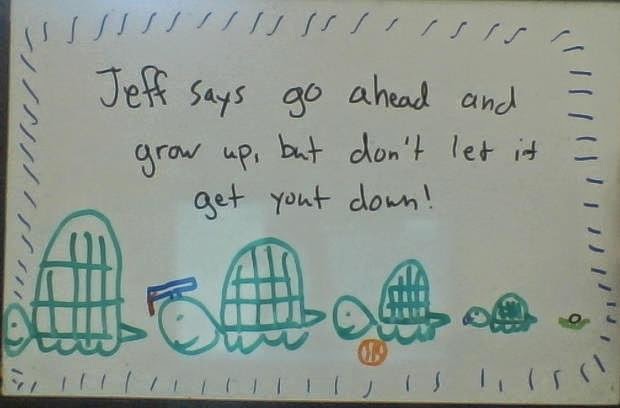 Jeff says go ahead and
grow up, but don't let it
get yout down!